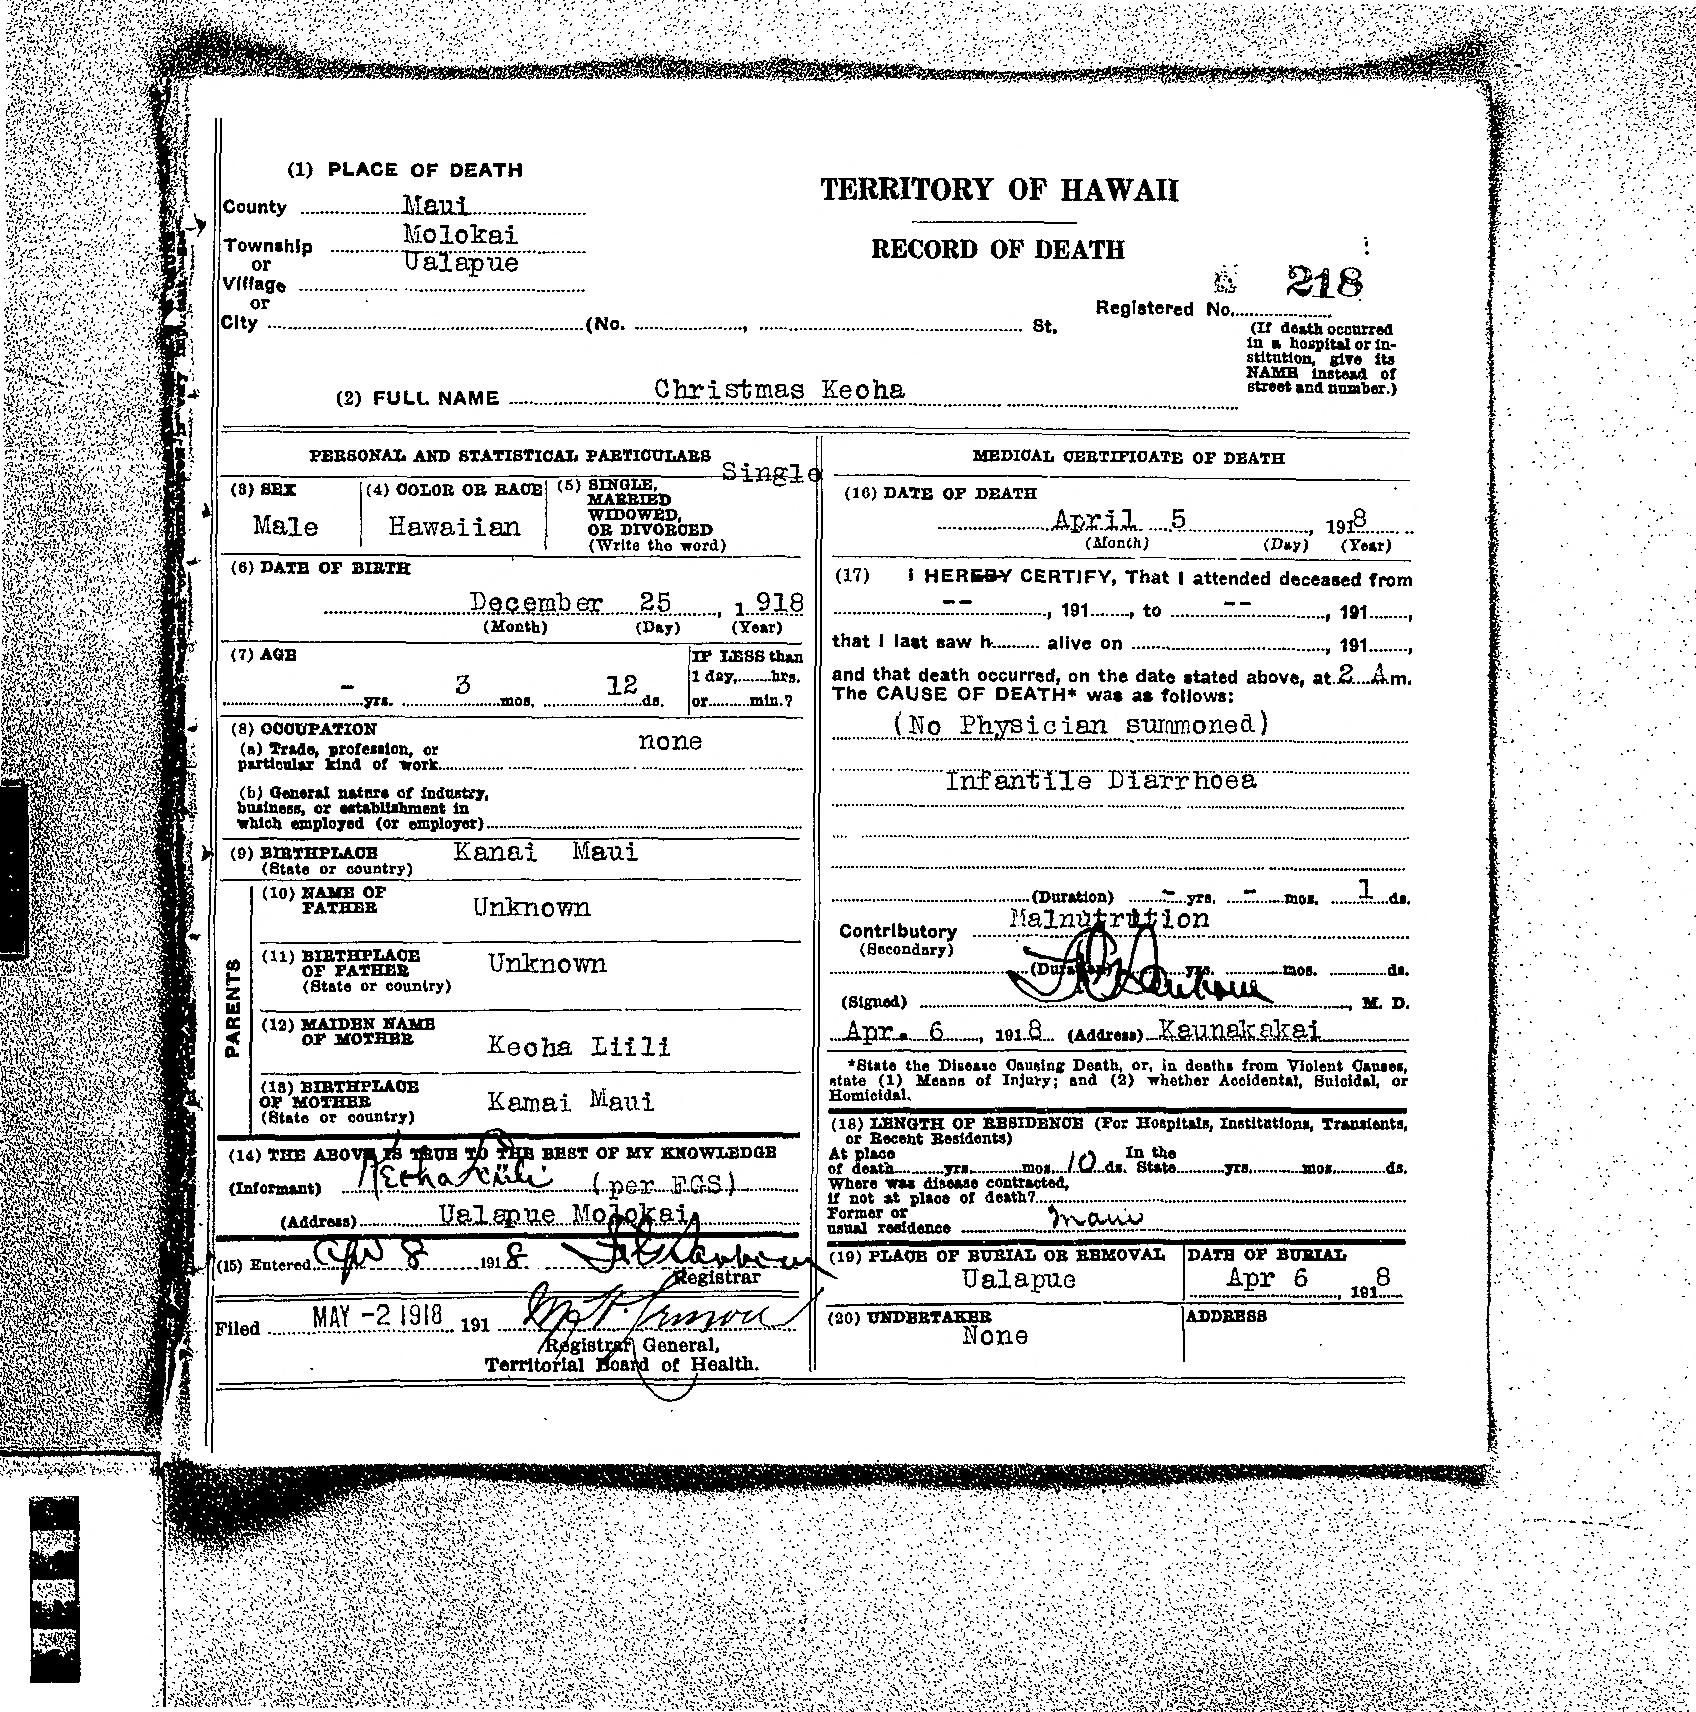 (1) PLACE OF DEATH
County Maui
Township Molokai
or Ualapue
Village
or
City (No. , St.
TERRITORY OF HAWAII
RECORD OF DEATH
218
Registered No.
(If death occurred
in a hospital or in-
stitution, give its
NAME instead of
street and number.)
(2) FULL NAME Christmas Keoha
PERSONAL AND STATISTICAL PARTICULARS
(3) SEX
Male
(4) COLOR OR RACE
Hawaiian
(5) SINGLE, Single
MARRIED
WIDOWED,
OR DIVORCED
(Write the word)
(6) DATE OF BIRTH
December 25, 1918
(Month) (Day) (Year)
(7) AGE
- yrs. 3 mos. 12 ds.
IF LESS than
1 day, hrs.
or min.?
(8) OCCUPATION
(a) Trade, profession, or none
particular kind of work
(b) General nature of industry,
business, or establishment in
which employed (or employer)
(9) BIRTHPLACE Kanai Maui
(State or country)
PARENTS
(10) NAME OF
FATHER Unknown
(11) BIRTHPLACE
OF FATHER Unknown
(State or country)
(12) MAIDEN NAME
OF MOTHER Keoha Liili
(13) BIRTHPLACE
OF MOTHER Kamai Maui
(State or country)
(14) THE ABOVE IS TRUE TO THE BEST OF MY KNOWLEDGE
(Informant) Keoha Liili (per FGS)
(Address) Ualapue Molokai
(15) Entered Apr 8 1918
Registrar
Filed MAY -2 1918 191
Registrar General,
Territorial Board of Health.
MEDICAL CERTIFICATE OF DEATH
(16) DATE OF DEATH
April 5, 1918
(Month) (Day) (Year)
(17) I HEREBY CERTIFY, That I attended deceased from
--, 191, to --, 191,
that I last saw h alive on , 191,
and that death occurred, on the date stated above, at 2 Am.
The CAUSE OF DEATH* was as follows:
(No Physician summoned)
Infantile Diarrhoea
(Duration) - yrs. - mos. 1 ds.
Contributory Malnutrition
(Secondary)
(Duration) yrs. mos. ds.
(Signed) , M. D.
Apr. 6, 1918 (Address) Kaunakakai
*State the Disease Causing Death, or, in deaths from Violent Causes,
state (1) Means of Injury; and (2) whether Accidental, Suicidal, or
Homicidal.
(18) LENGTH OF RESIDENCE (For Hospitals, Institutions, Transients,
or Recent Residents)
At place In the
of death yrs. mos. 10 ds. State yrs. mos. ds.
Where was disease contracted,
if not at place of death?
Former or
usual residence Maui
(19) PLACE OF BURIAL OR REMOVAL
Ualapue
DATE OF BURIAL
Apr 6, 1918
(20) UNDERTAKER
None
ADDRESS